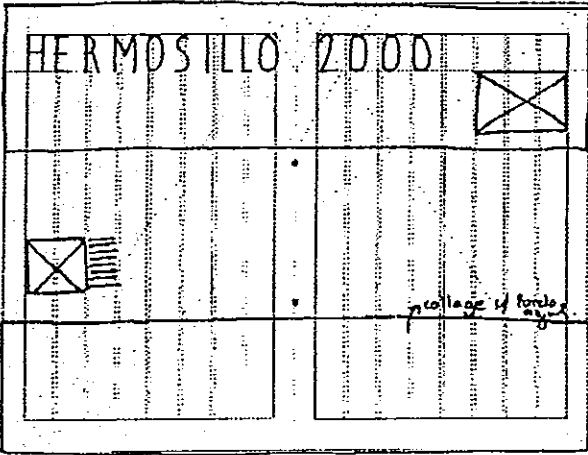 HERMOSILLO 2000
collage s/ fondo